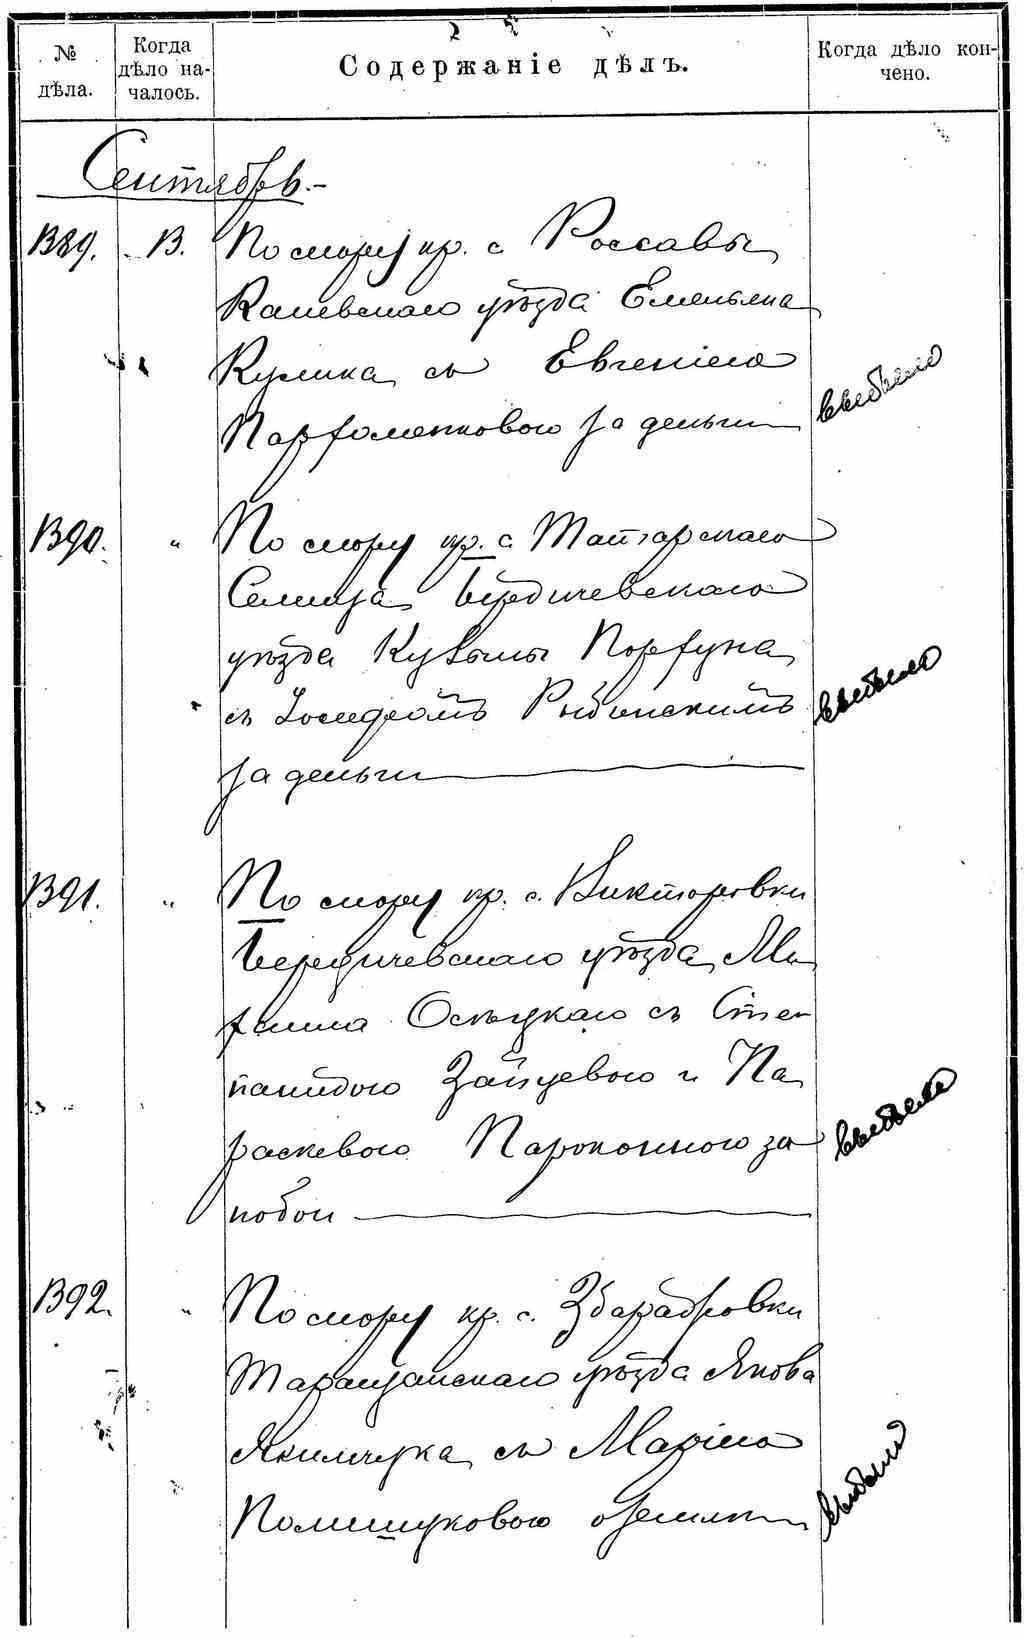 № дѣла.
Когда дѣло на-
чалось.
Содержаніе дѣлъ.
Когда дѣло кон-
чено.
Сентябрь.-
1389. 13. По спору кр. с Россавы
Каневскаго уѣзда Емельяна
Кулика съ Евгеніею
Парфоменковою за деньги
выбыло
1390. " По спору кр. с. Татарскаго
Селища Бердичевскаго
уѣзда Кузьмы Порфуна
съ Іосифомъ Рыбинскимъ
за деньги
выбыло
1391. " По спору кр. с. Викторовки
Бердичевскаго уѣзда
съ Степ
панидою Зайцевою и Па
раскевою за
побои
выбыло
1392. " По спору кр. с.
Таращанскаго уѣзда Якова
Якимчука съ Маріею
Полищуковою о землѣ
выбыло